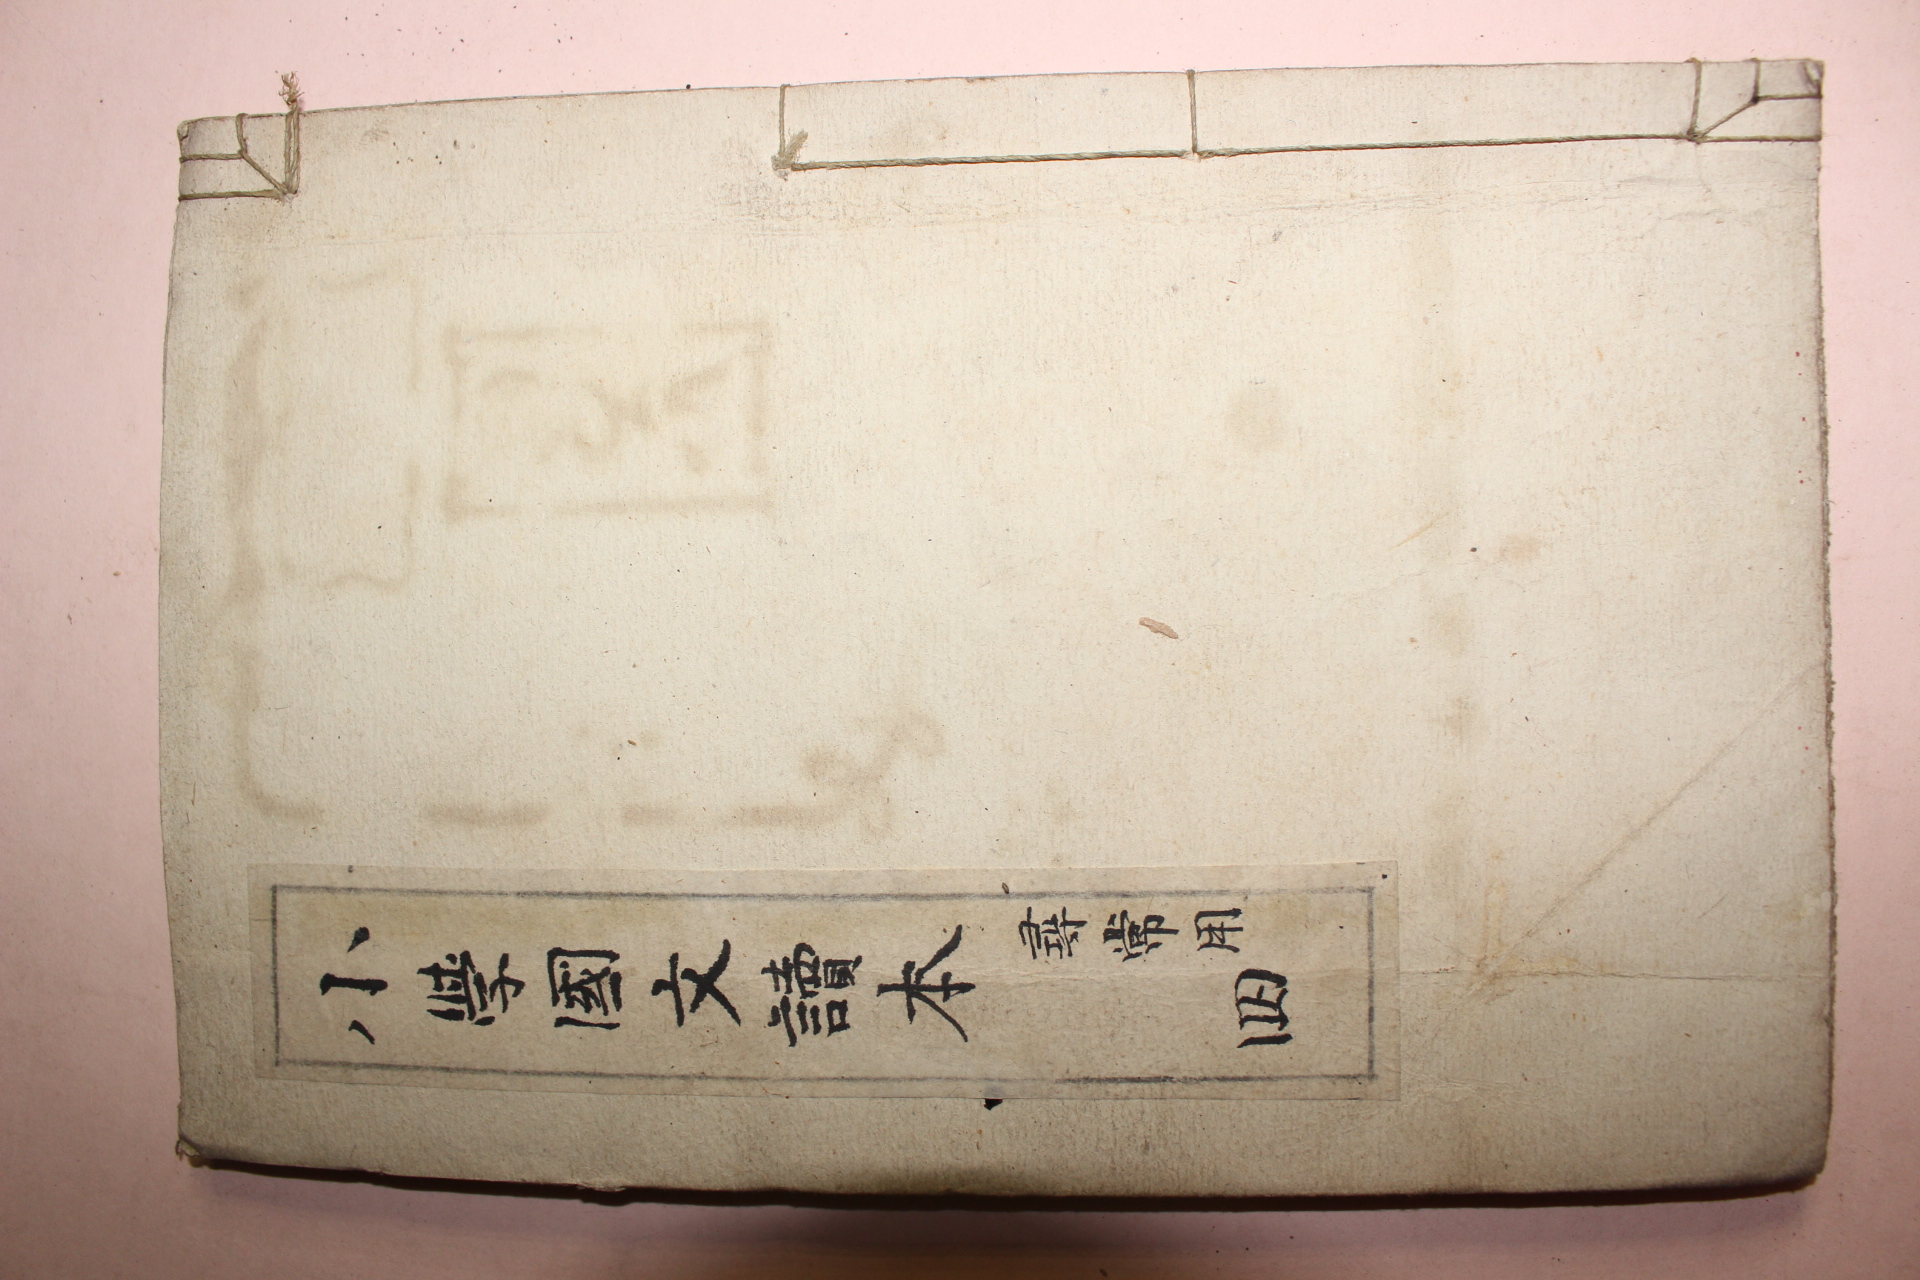 小學國文讀本
尋常用
四